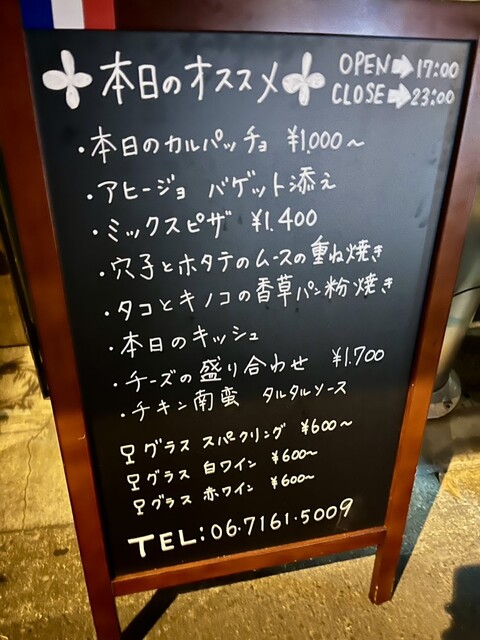 本日のオススメ
OPEN➡17:00
CLOSE➡23:00
・本日のカルパッチョ ¥1,000～
・アヒージョ バゲット添え
・ミックスピザ ¥1,400
・穴子とホタテのムースの重ね焼き
・タコとキノコの香草パン粉焼き
・本日のキッシュ
・チーズの盛り合わせ ¥1,700
・チキン南蛮 タルタルソース
グラス スパークリング ¥600～
グラス 白ワイン ¥600～
グラス 赤ワイン ¥600～
TEL:06・7161・5009